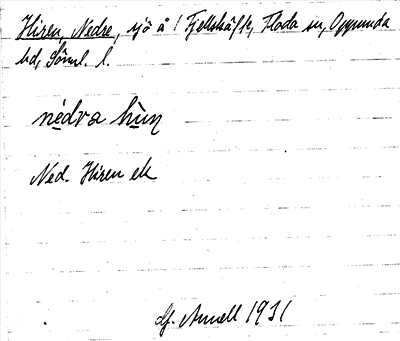 Hiren, Nedre, sjö å Fjellskäfte, Floda sn, Oppunda
hd, Söml. l.
nèdra hìrɳ
Ned. Hiren ek
Anell 1931